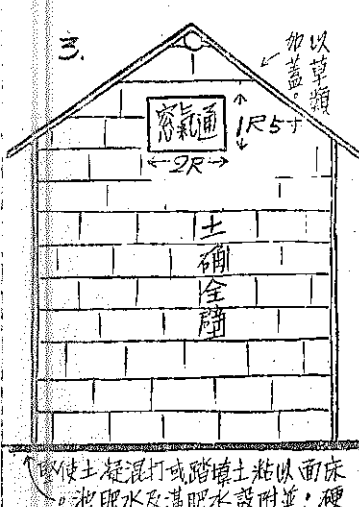 3.
以草類
加蓋。
通氣窓
1R5寸
2R
土
磚
全
壁
床面以粘土填踏或打混凝土使堅
硬,並附設水肥溝及水肥池。